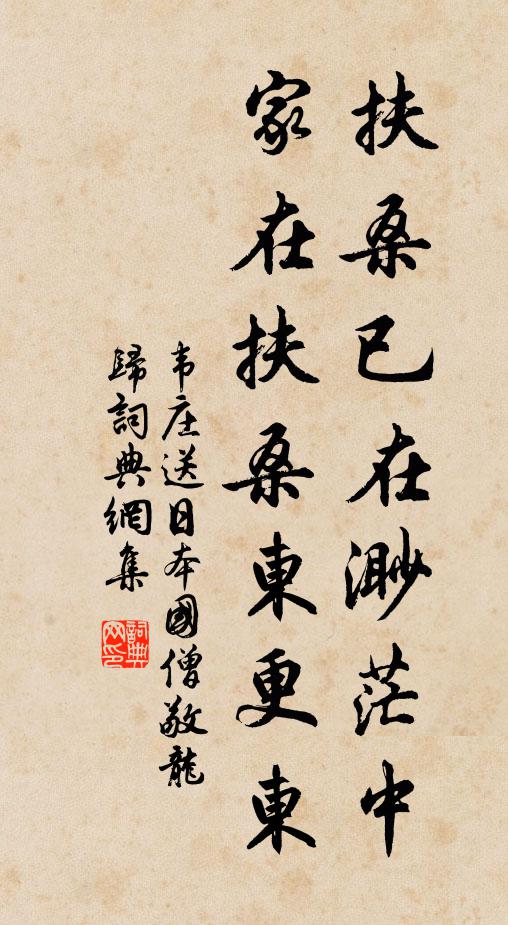 扶桑已在渺茫中
家在扶桑東更東
韦庄送日本國僧敬龍
歸詞典網集
詞典
网印